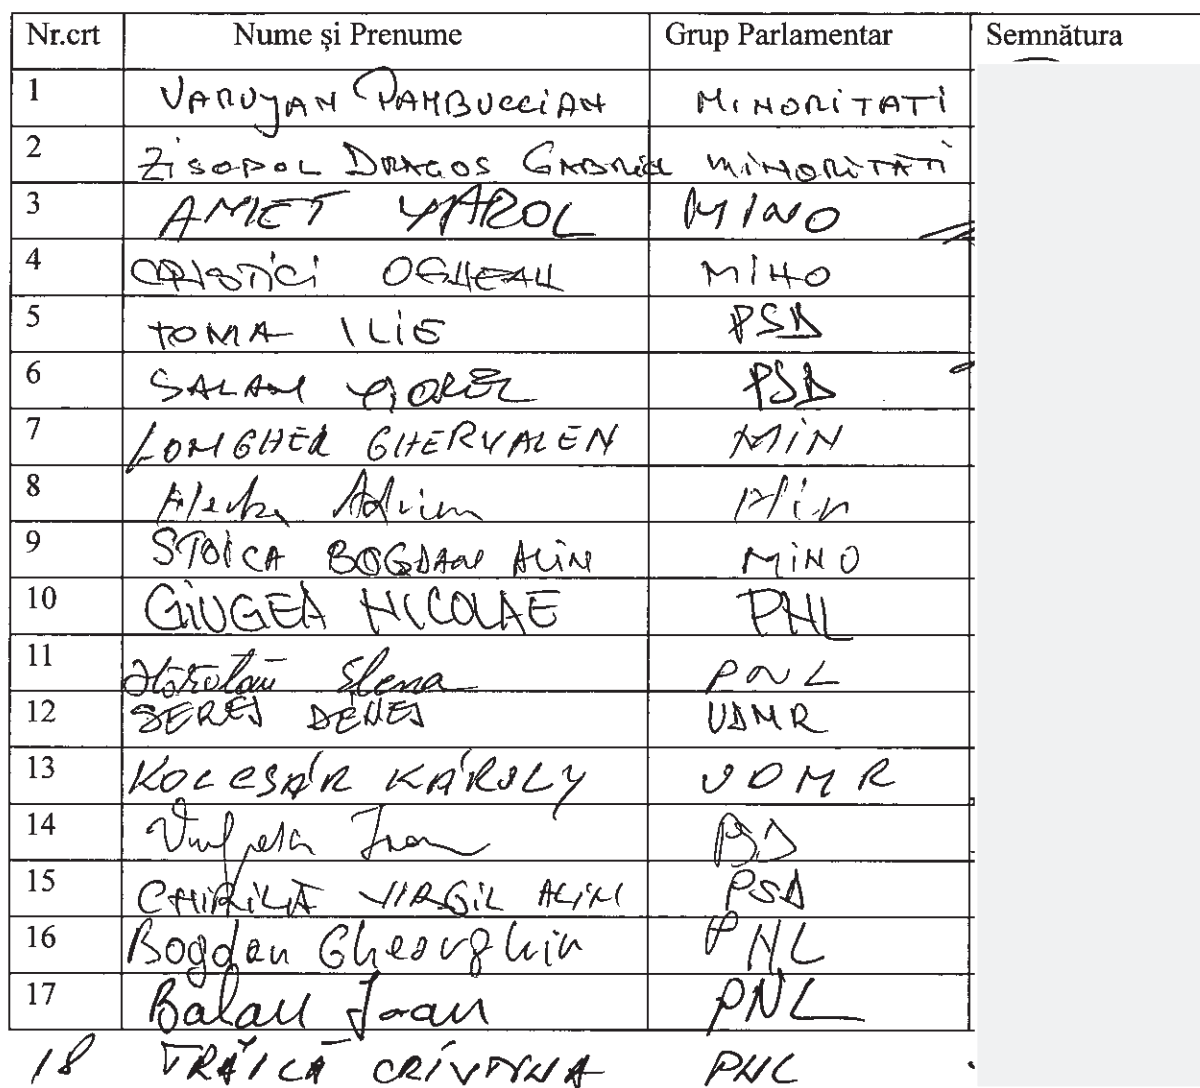 Nr.crt Nume și Prenume Grup Parlamentar Semnătura
1 VARUJAN PAMBUCCIAN MINORITATI
2 ZISOPOL DRAGOS GABRIEL MINORITATI
3 AMET YAROL MINO
4 CRISTICI OGNEAN MINO
5 TOMA ILIE PSD
6 SALAN VIOREL PSD
7 LONGHER GHERVALEN MIN
8 Adrian Min
9 STOICA BOGDAN ALIN MINO
10 GIUGEA NICOLAE PNL
11 Elena PNL
12 SERES DÉNES UDMR
13 KOLCSÁR KÁROLY UDMR
14 Vulpescu Ioan PSD
15 CHIRILĂ VIRGIL ALIN PSD
16 Bogdan Gheorghiu PNL
17 Balan Ioan PNL
18 TRĂILĂ CRISTINA PNL